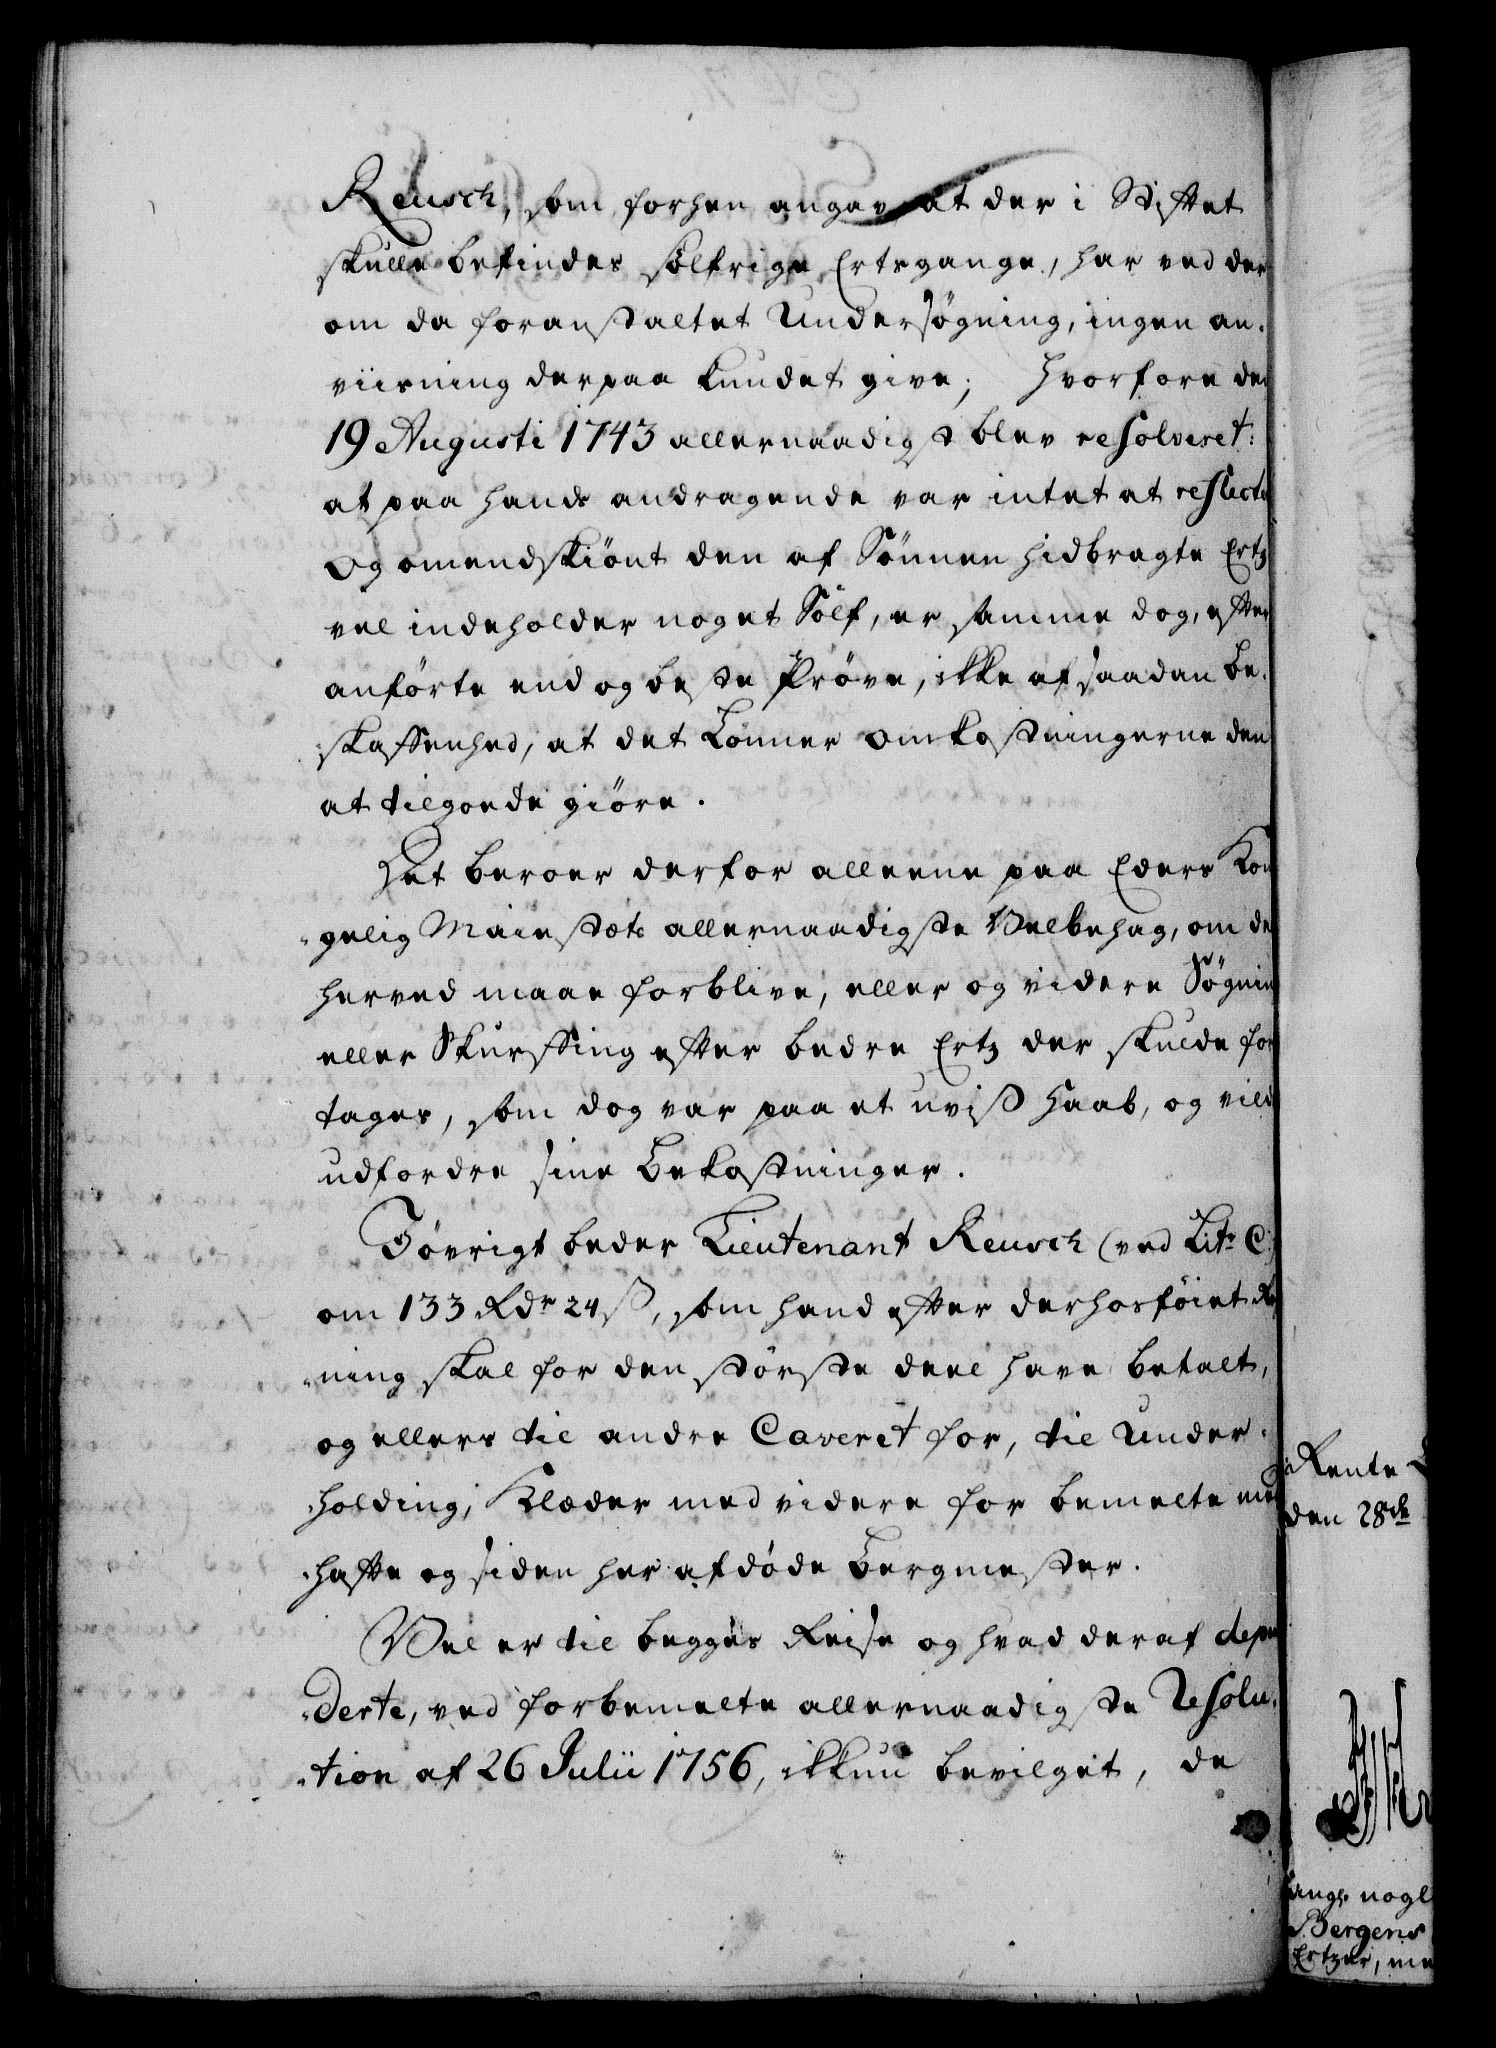 Reusch, som forhen angav at der i Stiftet
skulle befindes sølfrige Ertzgange, har ved der
om da foranstaltet Undersøgning, ingen an-
viisning derpaa kundet give; hvorfore den
19 Augusti 1743 allernaadigst blev resolveret:
at paa hands andragende var intet at reflecte
Og omendskiönt den af Sönnen hidbragte Ertz
vel indeholder noget Sölf, er samme dog, efter
anförte end og beste Pröve, ikke af saadan be-
skaffenhed, at det Lönner omkostningerne den
at tilgoede giöre.
Det beroer derfor alleene paa Eders Kon
gelig Maiestæts allernaadigste Velbehag, om de
herved maae forblive, eller og videre Søgnin
eller Skurffing efter bedre Ertz der skulde for
tages, som dog var paa et uviss Haab, og vild
udfordre sine Bekostninger.
Iövrigt beder Lieutenant Reusch (ved Litr C:)
om 133 Rdr 24 ß, som hand efter derhosföiet Re
ning skal for den störste deel have betalt,
og ellers til andre Caveret for, til Under-
holding, Klæder med videre for bemelte med
hafte og siden her afdöde Bergmester.
Vel er til begges Reise og hvad deraf depen
derte, ved forbemelte allernaadigste Resolu-
tion af 26 Julii 1756, ikkun bevilget, de
Rente
den 28de
ang. nogl
Bergens
Ertzer, me